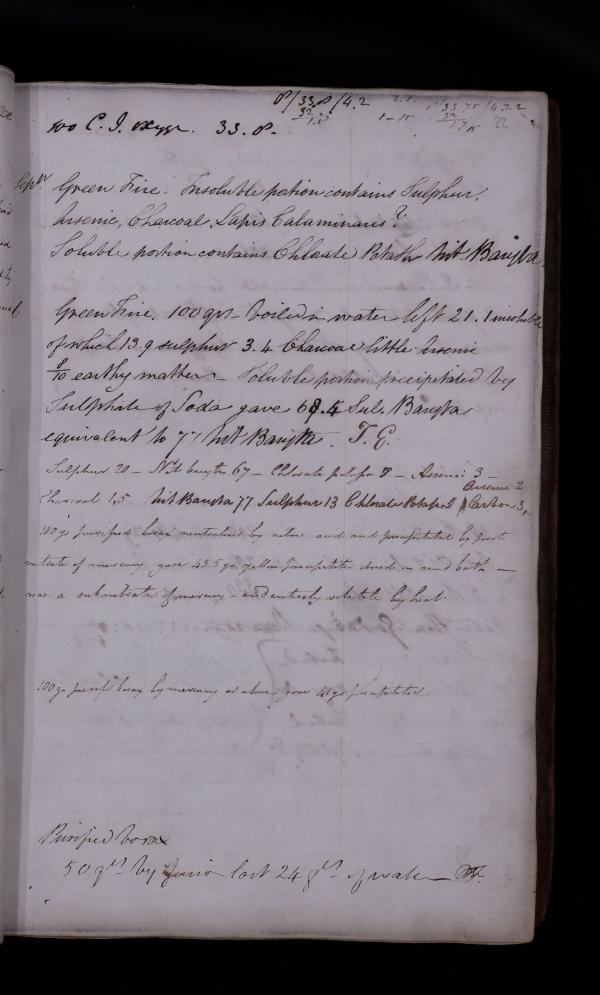 8/33.8/4.2
32
1.8
33.75/4.22
32
175
22
100 C. I. oxyge. 33.8.
Sepr
Green Fire. Insoluble portion contains Sulphur,
Arsenic, Charcoal, Lapis Calaminaris?
Soluble portion contains Chlorate Potash Nit Baryta
Green Fire. 100 grs boiled in water left 21.1 insoluble
of which 13.9 sulphur 3.4 Charcoal little Arsenic
8/10 earthy matter - Soluble portion precipitated by
Sulphate of Soda gave 68.4 Sul. Baryta
equivalent to 77 Nit Barytes. T. G.
Sulphur 20 - Nit barytes 67 - Chlorate potassa 8 - Arsenic 3 -
Arsenic 2
Charcoal 1,5 Nit Baryta 77 Sulphur 13 Chlorate Potassa Carbon 3,
100 grs purified borax neutralised by nitric acid and precipitated by prot
nitrate of mercury gave 43.5 grs yellow precipitate dried on sand bath -
was a subnitrate of mercury - and entirely volatile by heat.
100 grs purified borax by mercury as above gave 41 grs precipitated
Purified borax
50 grs by fusion lost 24 grs of water